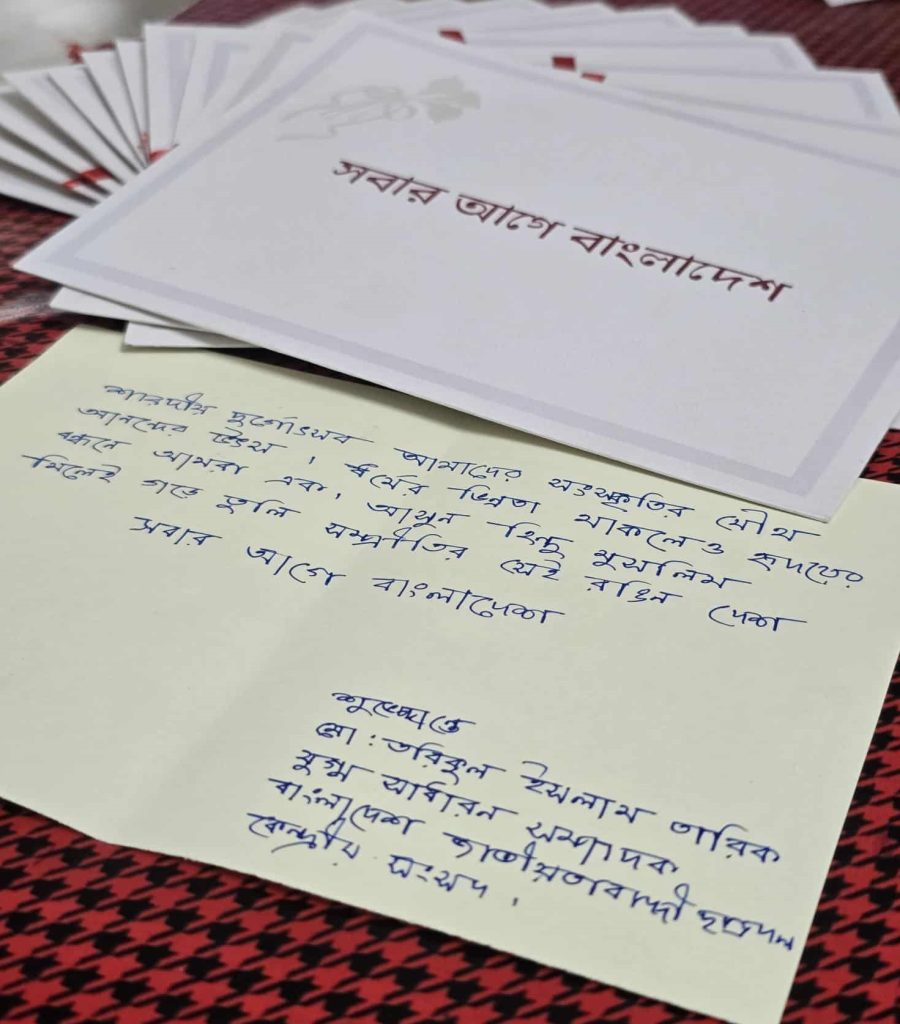 সবার আগে বাংলাদেশ
শারদীয় দুর্গোৎসব আমাদের সংস্কৃতির যৌথ
আনন্দের উৎস। ধর্মের ভিন্নতা থাকলেও হৃদয়ের
বন্ধনে আমরা এক, আসুন হিন্দু মুসলিম
মিলেই গড়ে তুলি সম্প্রীতির সেই রঙিন দেশ
সবার আগে বাংলাদেশ
শুভেচ্ছান্তে
মো: তরিকুল ইসলাম তারিক
যুগ্ম সাধারন সম্পাদক
বাংলাদেশ জাতীয়তাবাদী ছাত্রদল
কেন্দ্রীয় সংসদ।